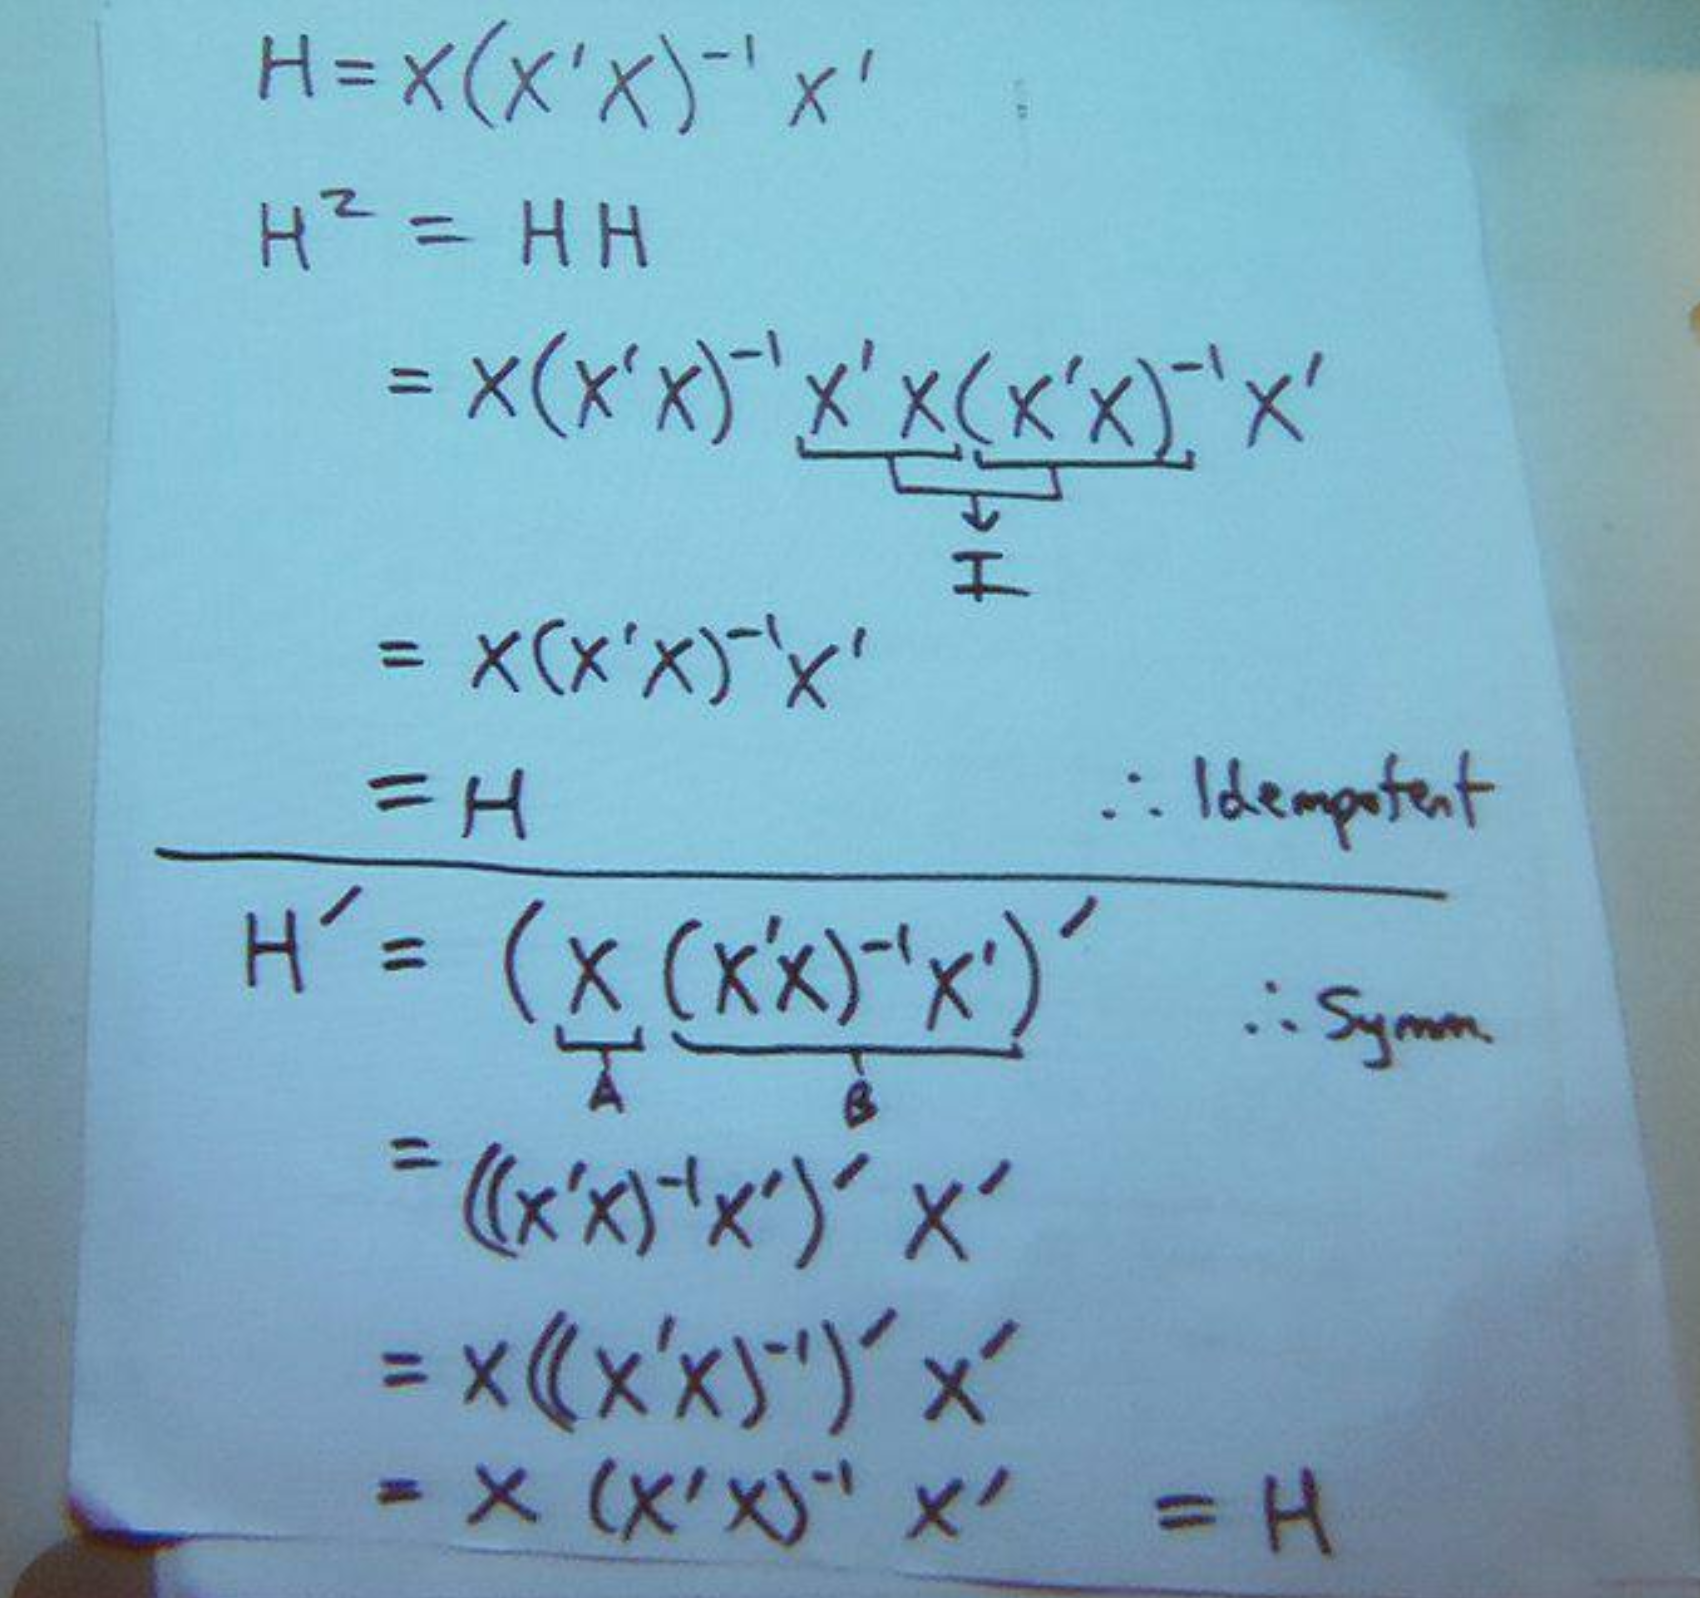 H = X(X'X)⁻¹ X'
H² = H H
= X(X'X)⁻¹ X' X (X'X)⁻¹ X'
I
= X(X'X)⁻¹X'
= H ∴ Idempotent
H' = (X (X'X)⁻¹X')' ∴ Symm.
A B
= ((X'X)⁻¹X')' X'
= X((X'X)⁻¹)' X'
= X (X'X)⁻¹ X' = H